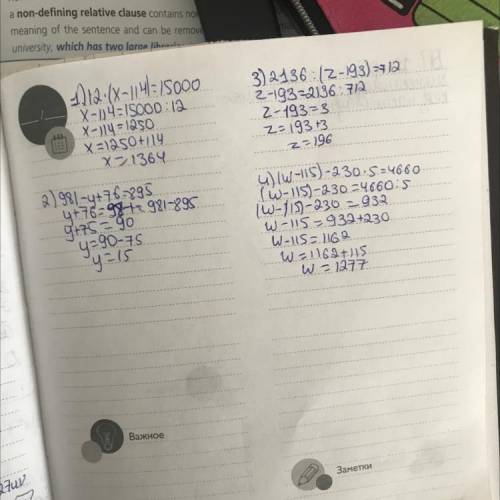 a non-defining relative clause contains
meaning of the sentence and can be remov
university, which has two large
1) 12·(x-114)=15000
x-114=15000:12
x-114=1250
x=1250+114
x=1364
2) 981-y+76=895
y+76= 981-895
y+75=90
y=90-75
y=15
3) 2136:(z-193)=712
z-193=2136:712
z-193=3
z=193+3
z=196
4) (w-115)-230·5=4660
(w-115)-230=4660:5
(w-115)-230=932
w-115=932+230
w-115=1162
w=1162+115
w=1277
Важное
Заметки